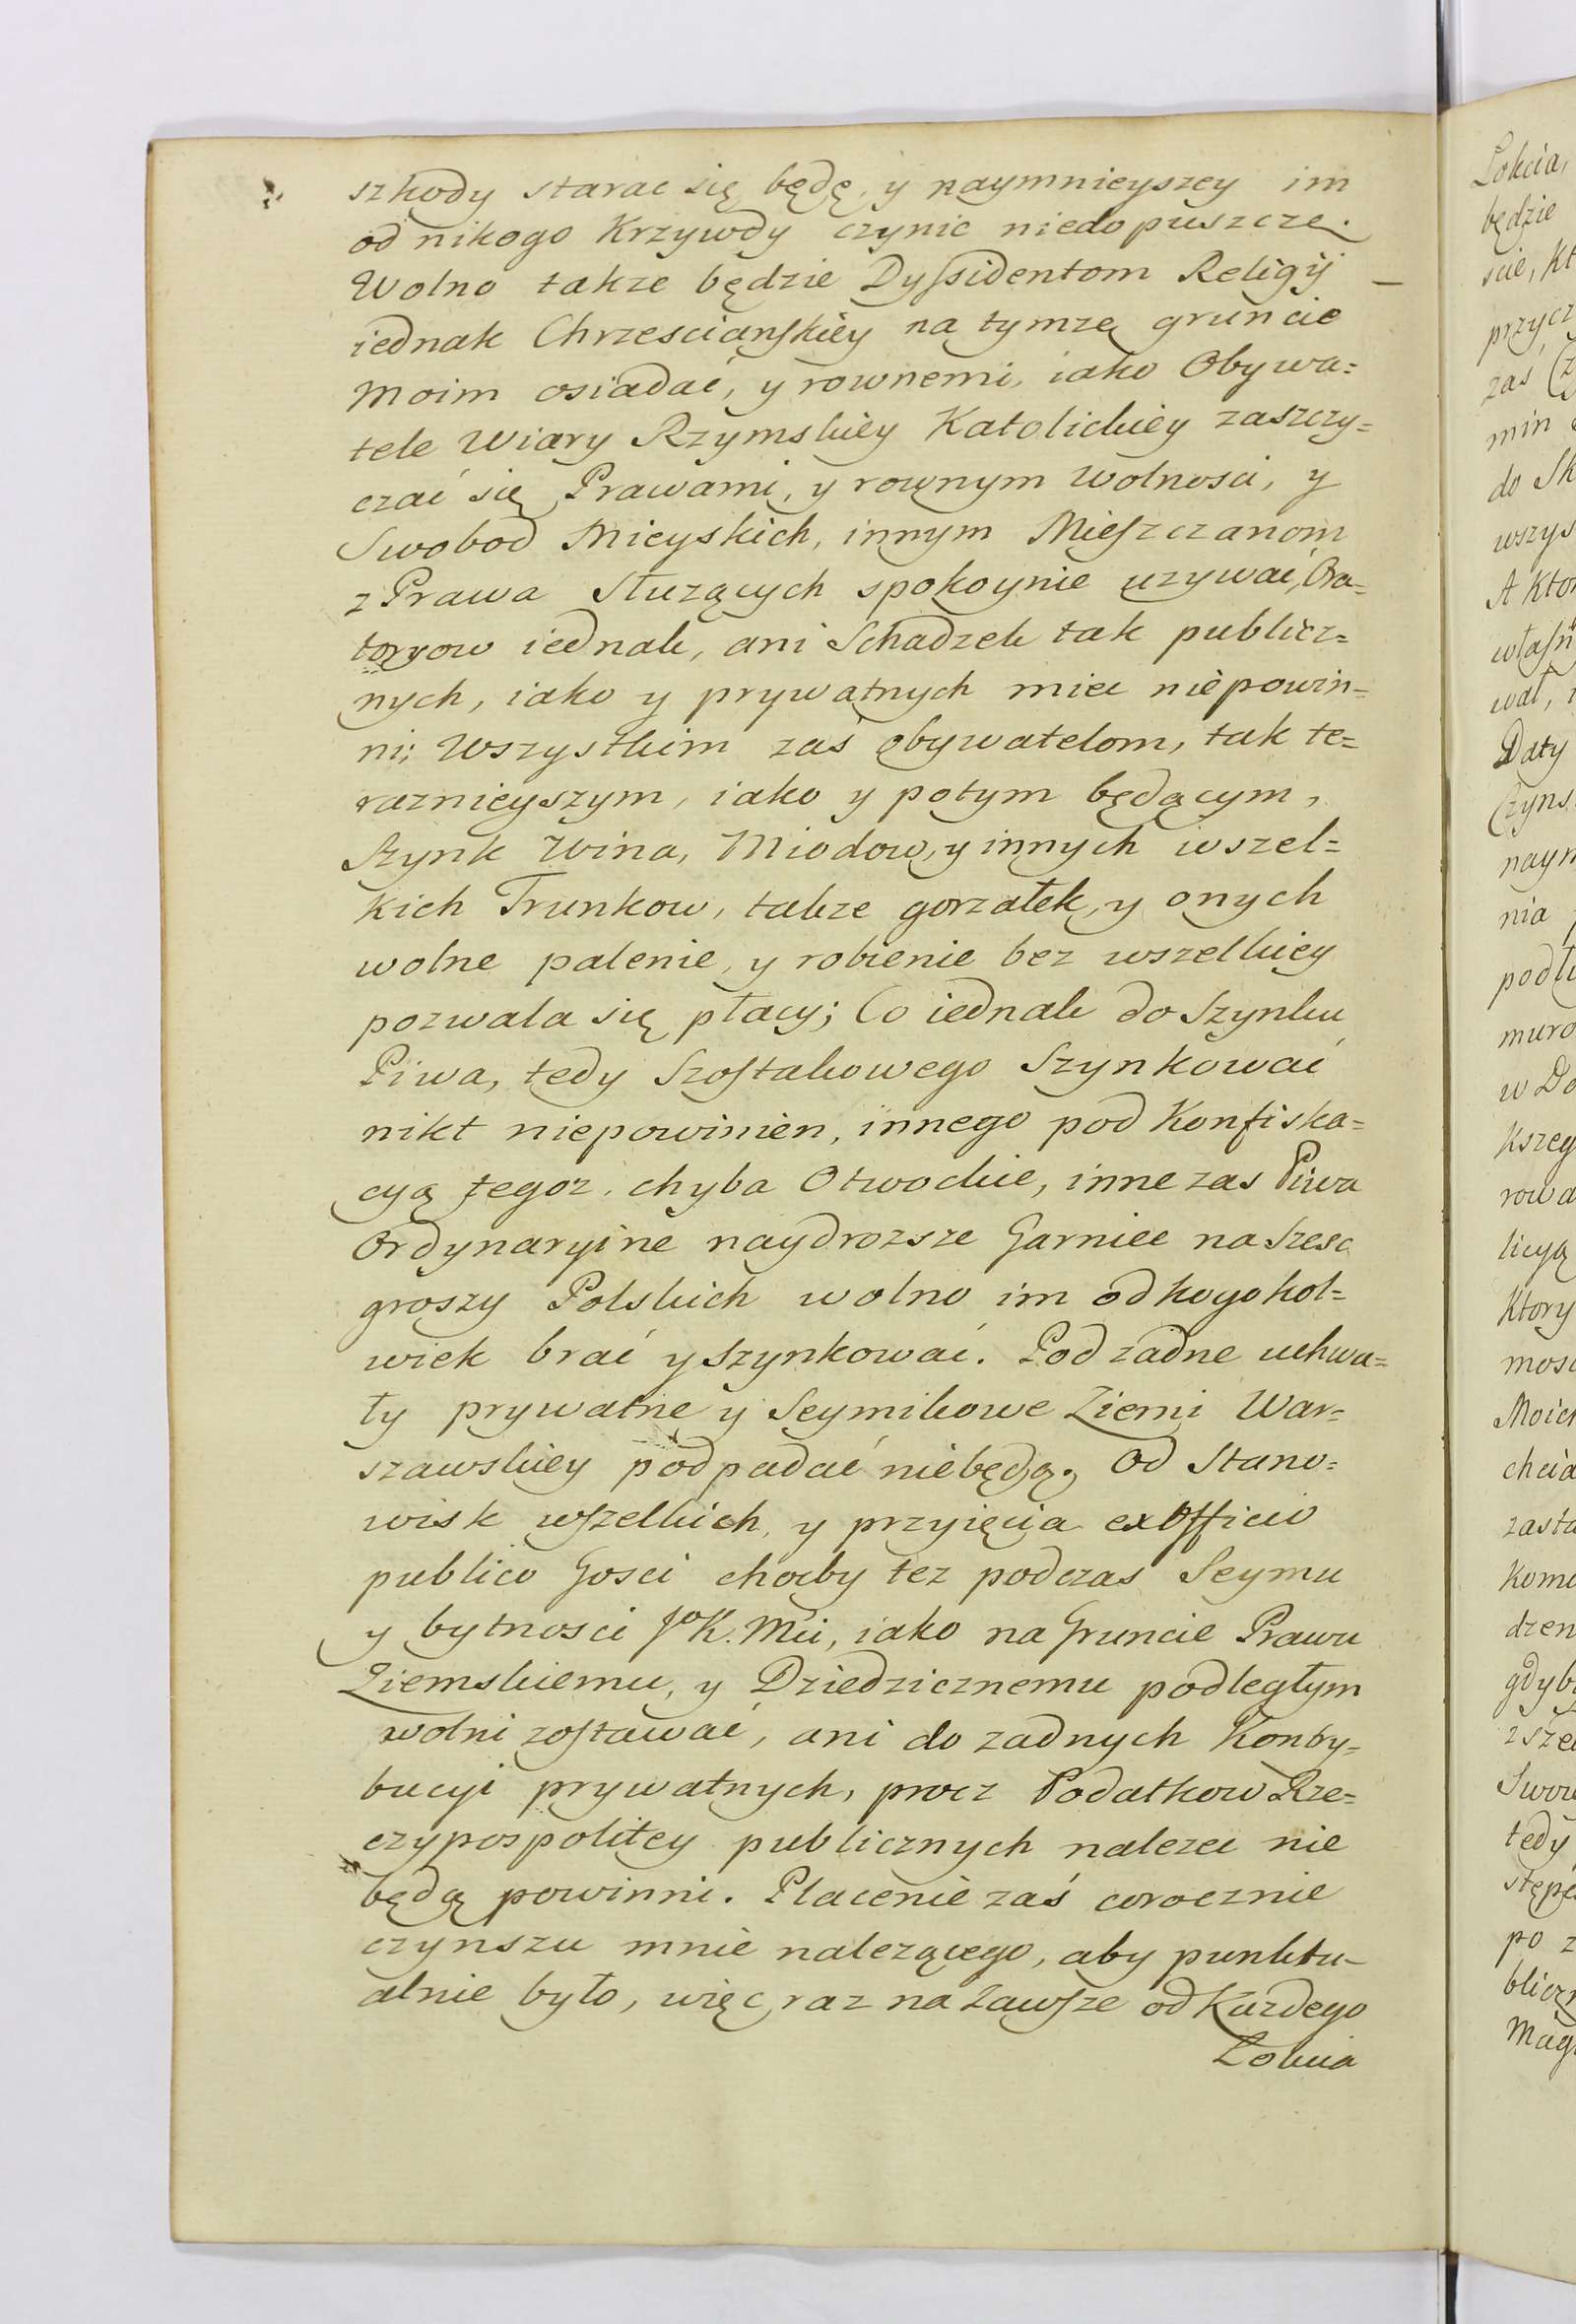 szkody starac się będę, y naymnieyszey im
od nikogo Krzywdy czynic niedopuszczę.
Wolno takze będzie Dyſsidentom Religij –
iednak Chrzescianſkiey na tymze gruncie
moim osiadać, y rownemi, iako Obywa=
tele Wiary Rzymskiey Katolickiey zaszczy=
czać się Prawami, y rownym Wolnosci, y
Swobod Mieyskich, innym Mieſzczanom
z Prawa Służących spokoynie uzywać, Ora=
toryow iednak, ani Schadzek tak publicz=
nych, iako y prywatnych miec niepowin=
ni; Wszystkim zaś obywatelom, tak te=
raznieyszym, iako y potym będącym,
Szynk Wina, Miodow, y innych wszel=
kich Trunkow, takze gorzałek, y onych
wolne palenie, y robienie bez wszelkiey
pozwala się płacy; Co iednak do Szynku
Piwa, tedy Szoſtakowego Szynkować
nikt niepowinien, innego pod Konfiska=
cyą tegoz, chyba Otwockie, inne zas Piwa
Ordynaryine naydrozsze Garniec na szesc
groszy Polskich wolno im od kogokol=
wiek brać y szynkować. Pod zadne uchwa=
ły prywatne y Seymikowe Ziemi War=
szawskiey podpadać niebędą. Od Stano=
wisk wſzelkich, y przyięcia ex Officio
publico Gosci choćby tez podczas Seymu
y bytnosci Jo K. Mci, iako na Gruncie Prawu
Ziemskiemu, y Dziedzicznemu podległym
wolni zoſtawać, ani do zadnych Kontry=
bucyi prywatnych, procz Podatkow Rze=
czypospolitey publicznych nalezec nie
będą powinni. Placenie zaś corocznie
czynszu mnie nalezącego, aby punktu-
alnie było, więc raz na zawſze od Kazdego
Łokcia
Lokcia,
będzie
scie, kt
przycz
zaś
min
do Sk
wszys
A Ktor
własn
wał,
Daty
Czyns
nayn
nia
podłu
muro
w Do
kszey
rowa
licyą
Ktory
mosc
Moich
chcia
zasta
Komo
dzen
gdyb
z sze
Swow
tedy
stępe
po z
bliczn
Mag